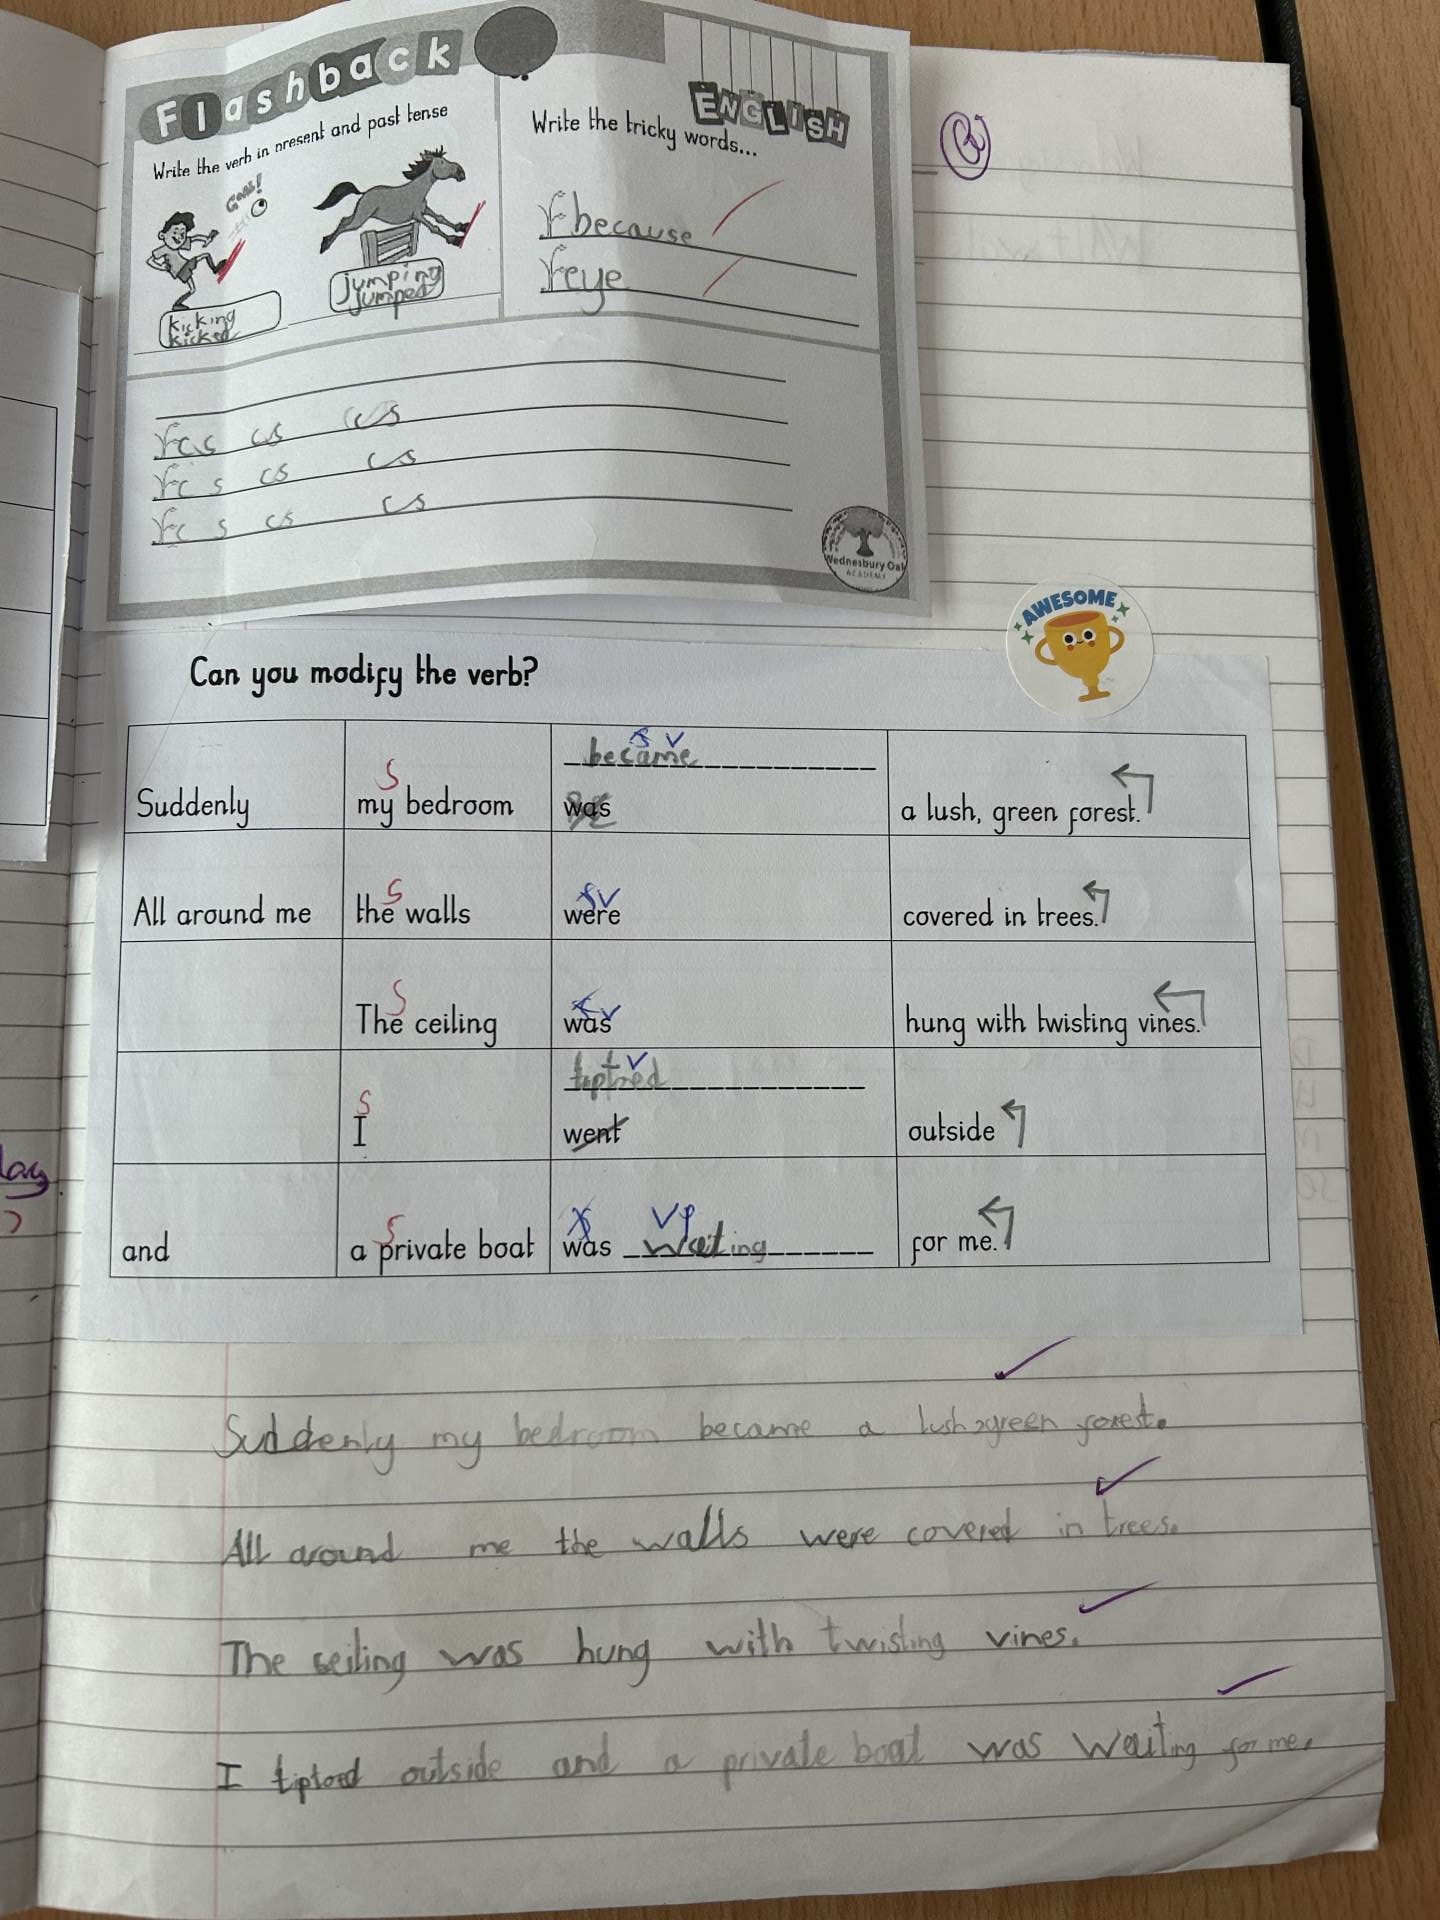 Flashback
Write the verb in present and past tense
Goal!
kicking
kicked
jumping
jumped
ENGLISH
Write the tricky words...
because
eye
cs cs cs
cs cs cs
cs cs cs
Wednesbury Oak
ACADEMY
AWESOME
Can you modify the verb?
Suddenly my bedroom became was a lush, green forest.
S V
All around me the walls were covered in trees.
S V
The ceiling was hung with twisting vines.
S V
I went outside
S V
and a private boat was waiting for me.
S V
Suddenly my bedroom became a lush, green forest.
All around me the walls were covered in trees.
The seiling was hung with twisting vines.
I outside and a private boat was waiting for me.